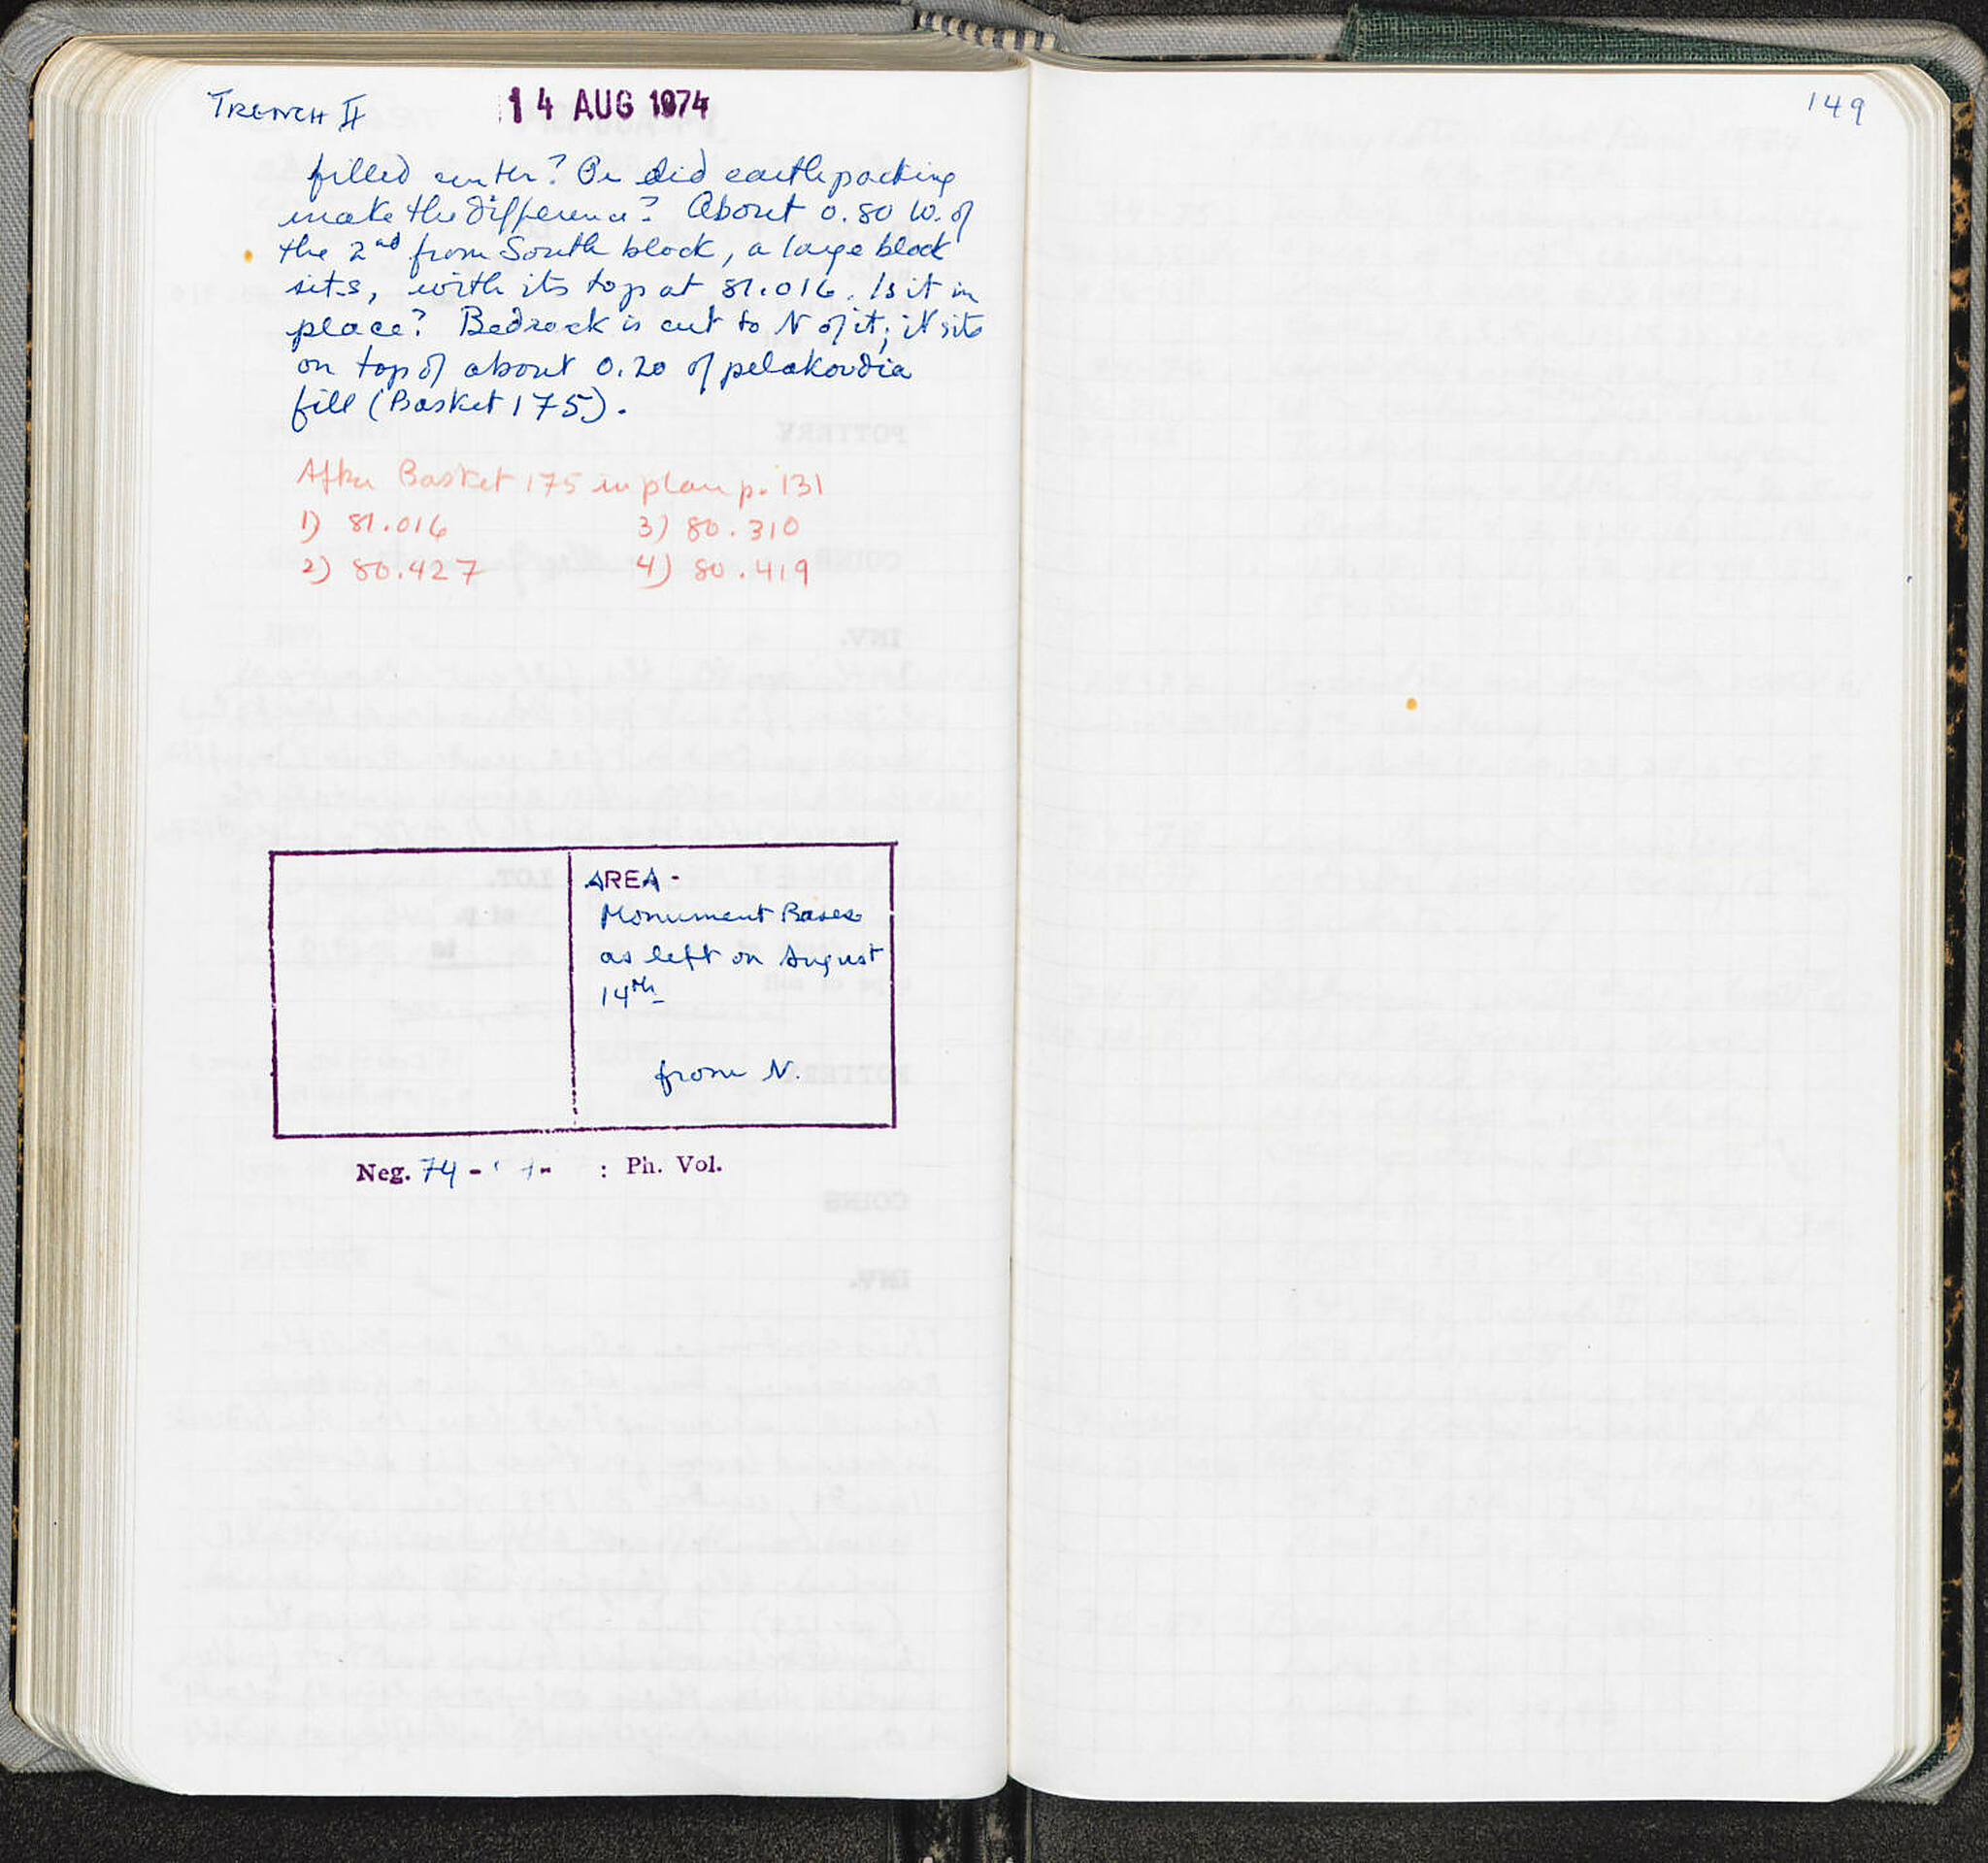 TRENCH II
14 AUG 1974
filled center? Or did earth packing
make the difference? About 0.80 W. of
the 2nd from South block, a large block
sits, with its top at 81.016. Is it in
place? Bedrock is cut to N of it; it sits
on top of about 0.20 of pelakoudia
fill (Basket 175).
After Basket 175 in plan p. 131
1) 81.016
3) 80.310
2) 80.427
4) 80.419
AREA -
Monument Bases
as left on August
14th
from N.
Neg. 74 - : Ph. Vol.
149